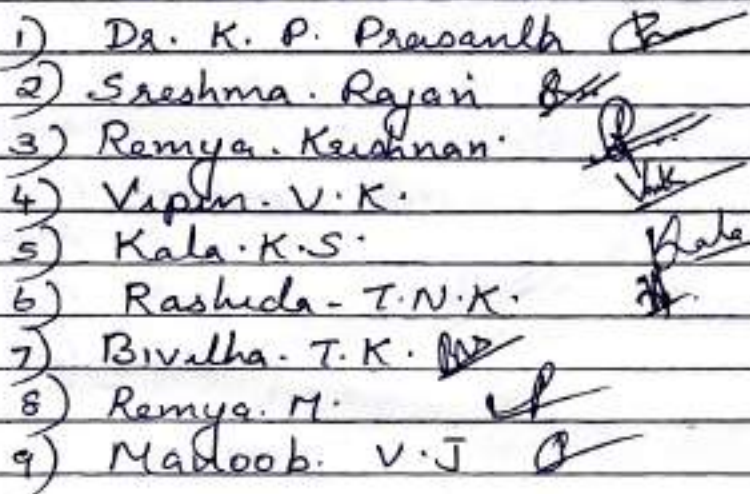 1) Dr. K. P. Prasanth
2) Sreshma. Rajan
3) Remya. Krishnan.
4) Vipin. V. K.
5) Kala. K. S. Kala
6) Rashida - T. N. K.
7) Bivitha. T. K.
8) Remya. M.
9) V. J